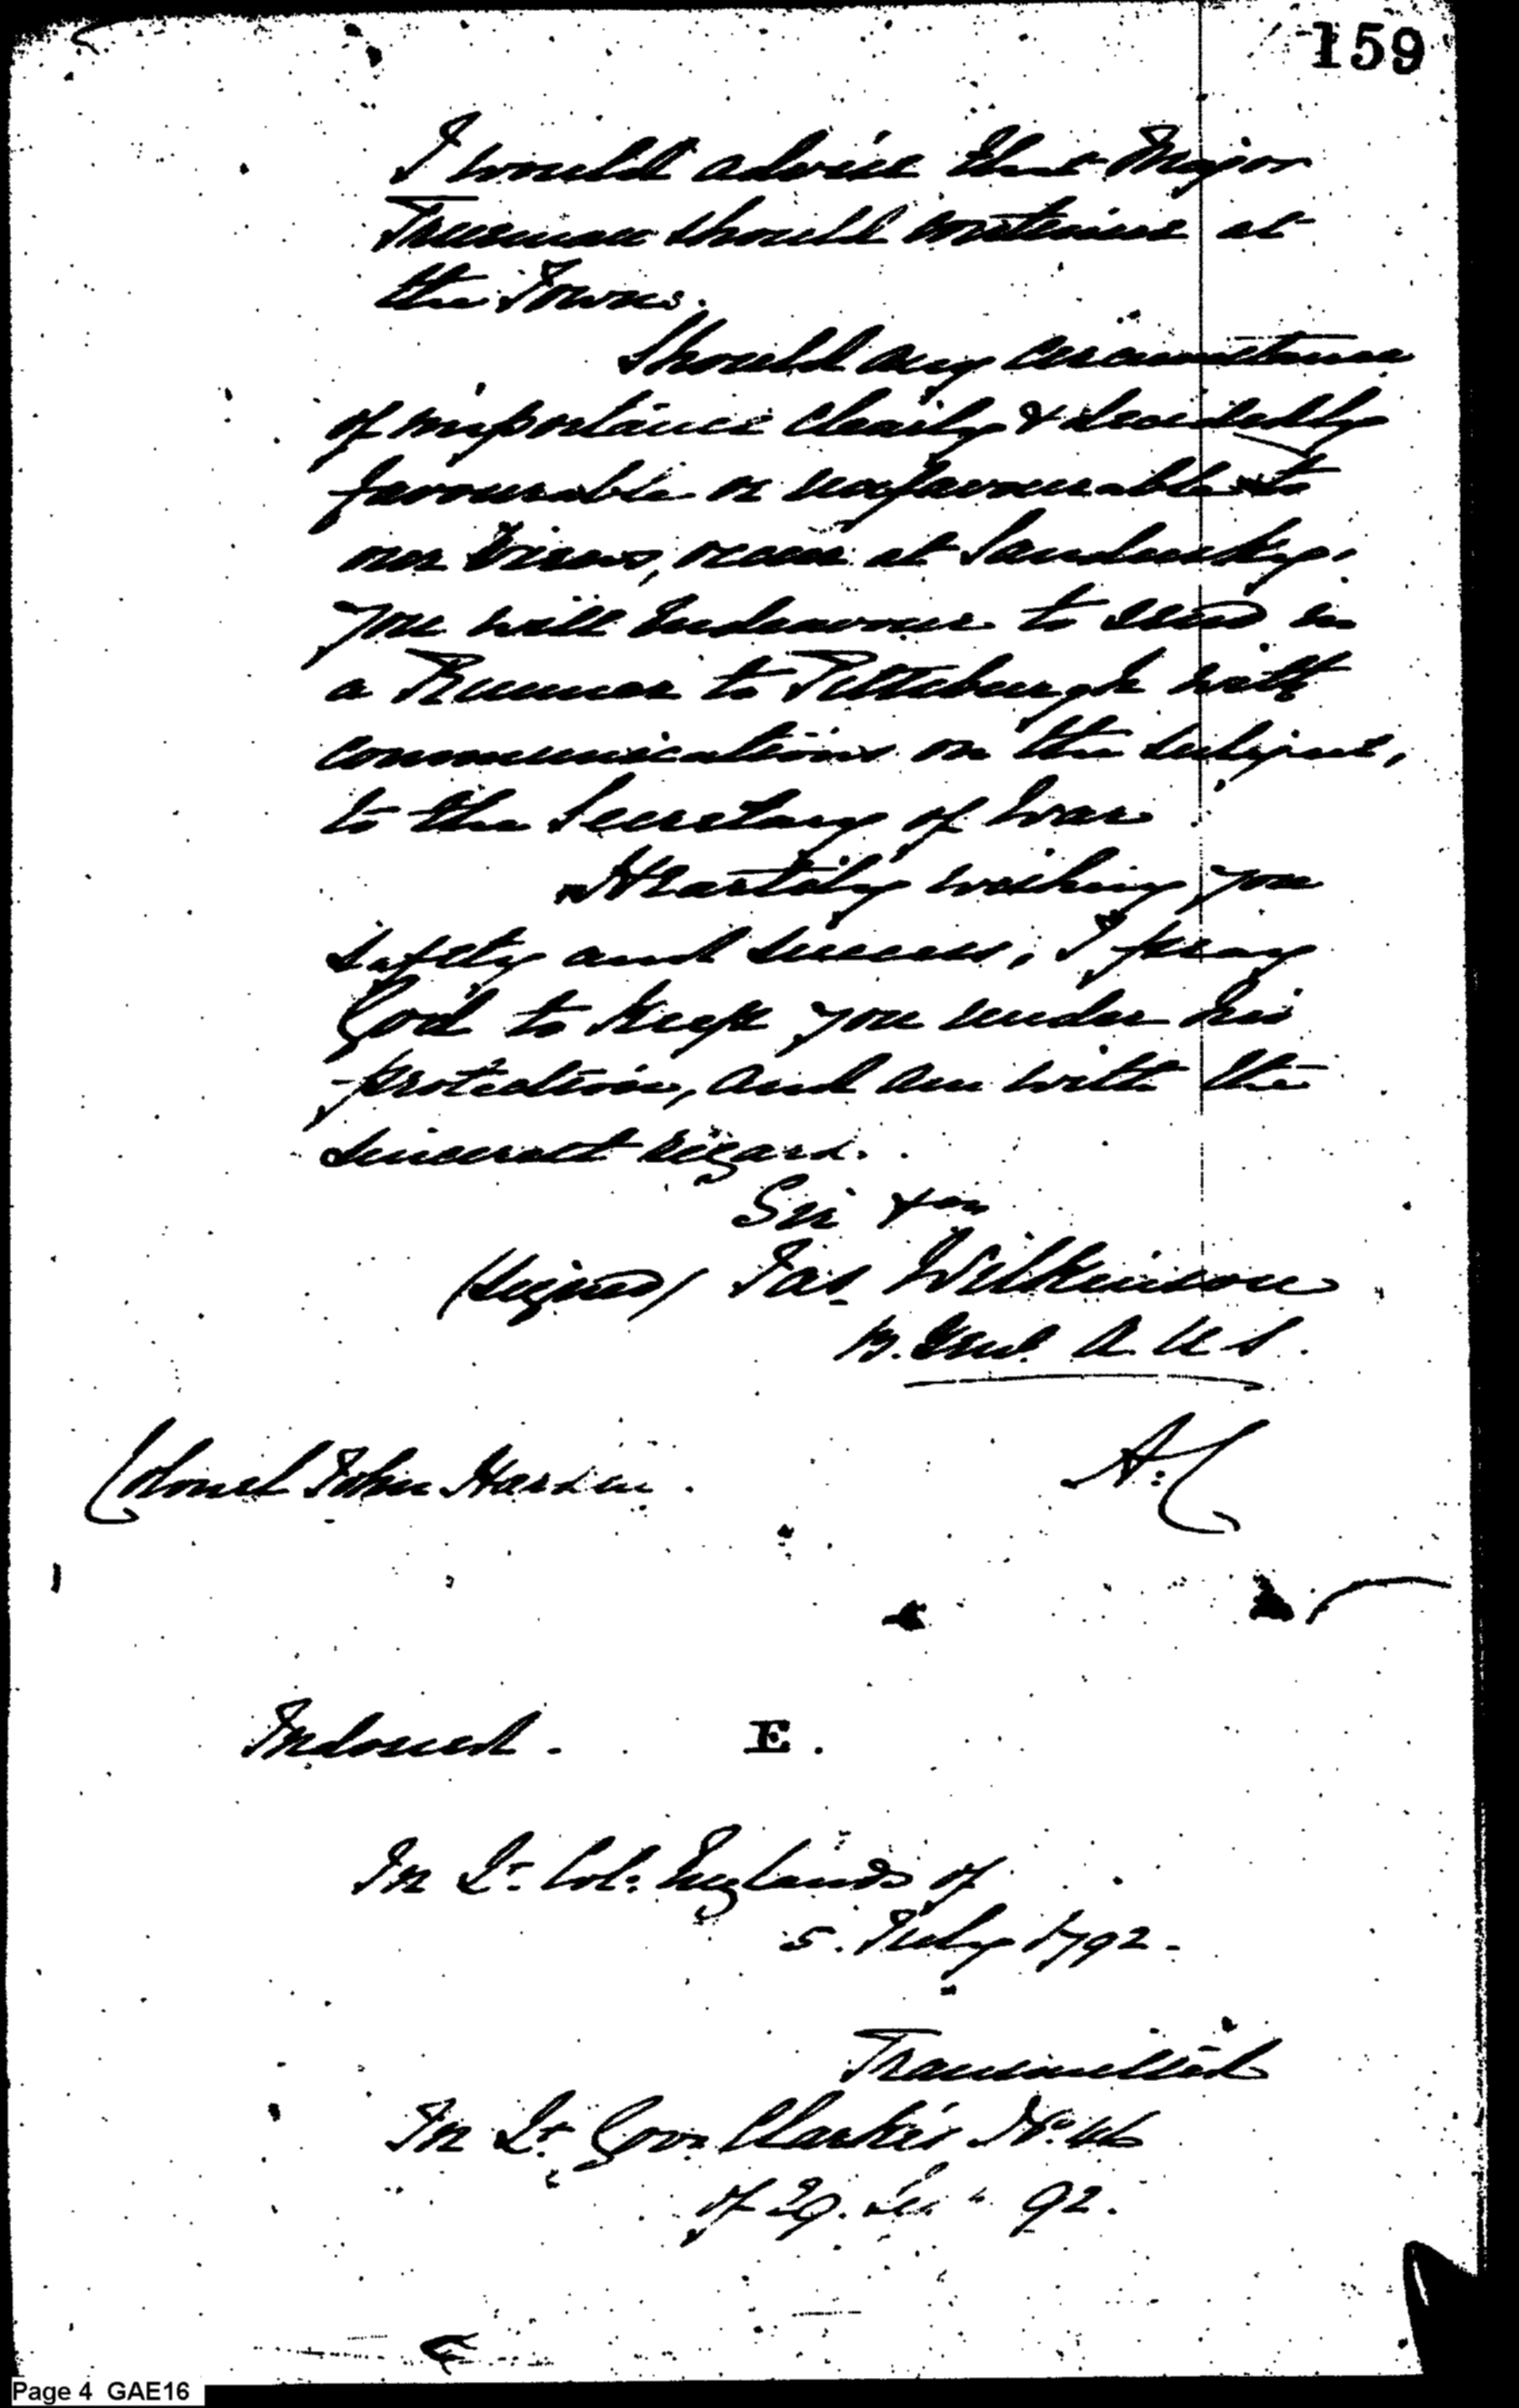 159
I would advise that Major
Trueman should continue at
the Towns.
Should any circumstance
of importance clearly & decidedly
favourable or unfavourable to
our Views, occur at Sandusky,
you will endeavour to send in
a Runner to Pittsburgh with
communications on the subject,
to the Secretary of War
Heartily wishing you
safety and success, I pray
God to keep you under his
protection, and am with the
sincerest regard.
Sir
(signed) Jas. Wilkinson
B. Genl. A. U S.
Colonel John Hardin.
A. C
Indorsed. E.
In Lt. Col: Englands of
5. July 1792.
Transmitted
In Lt. Gov. Clarke's No. 46
of 29. 92.
Page 4 GAE16